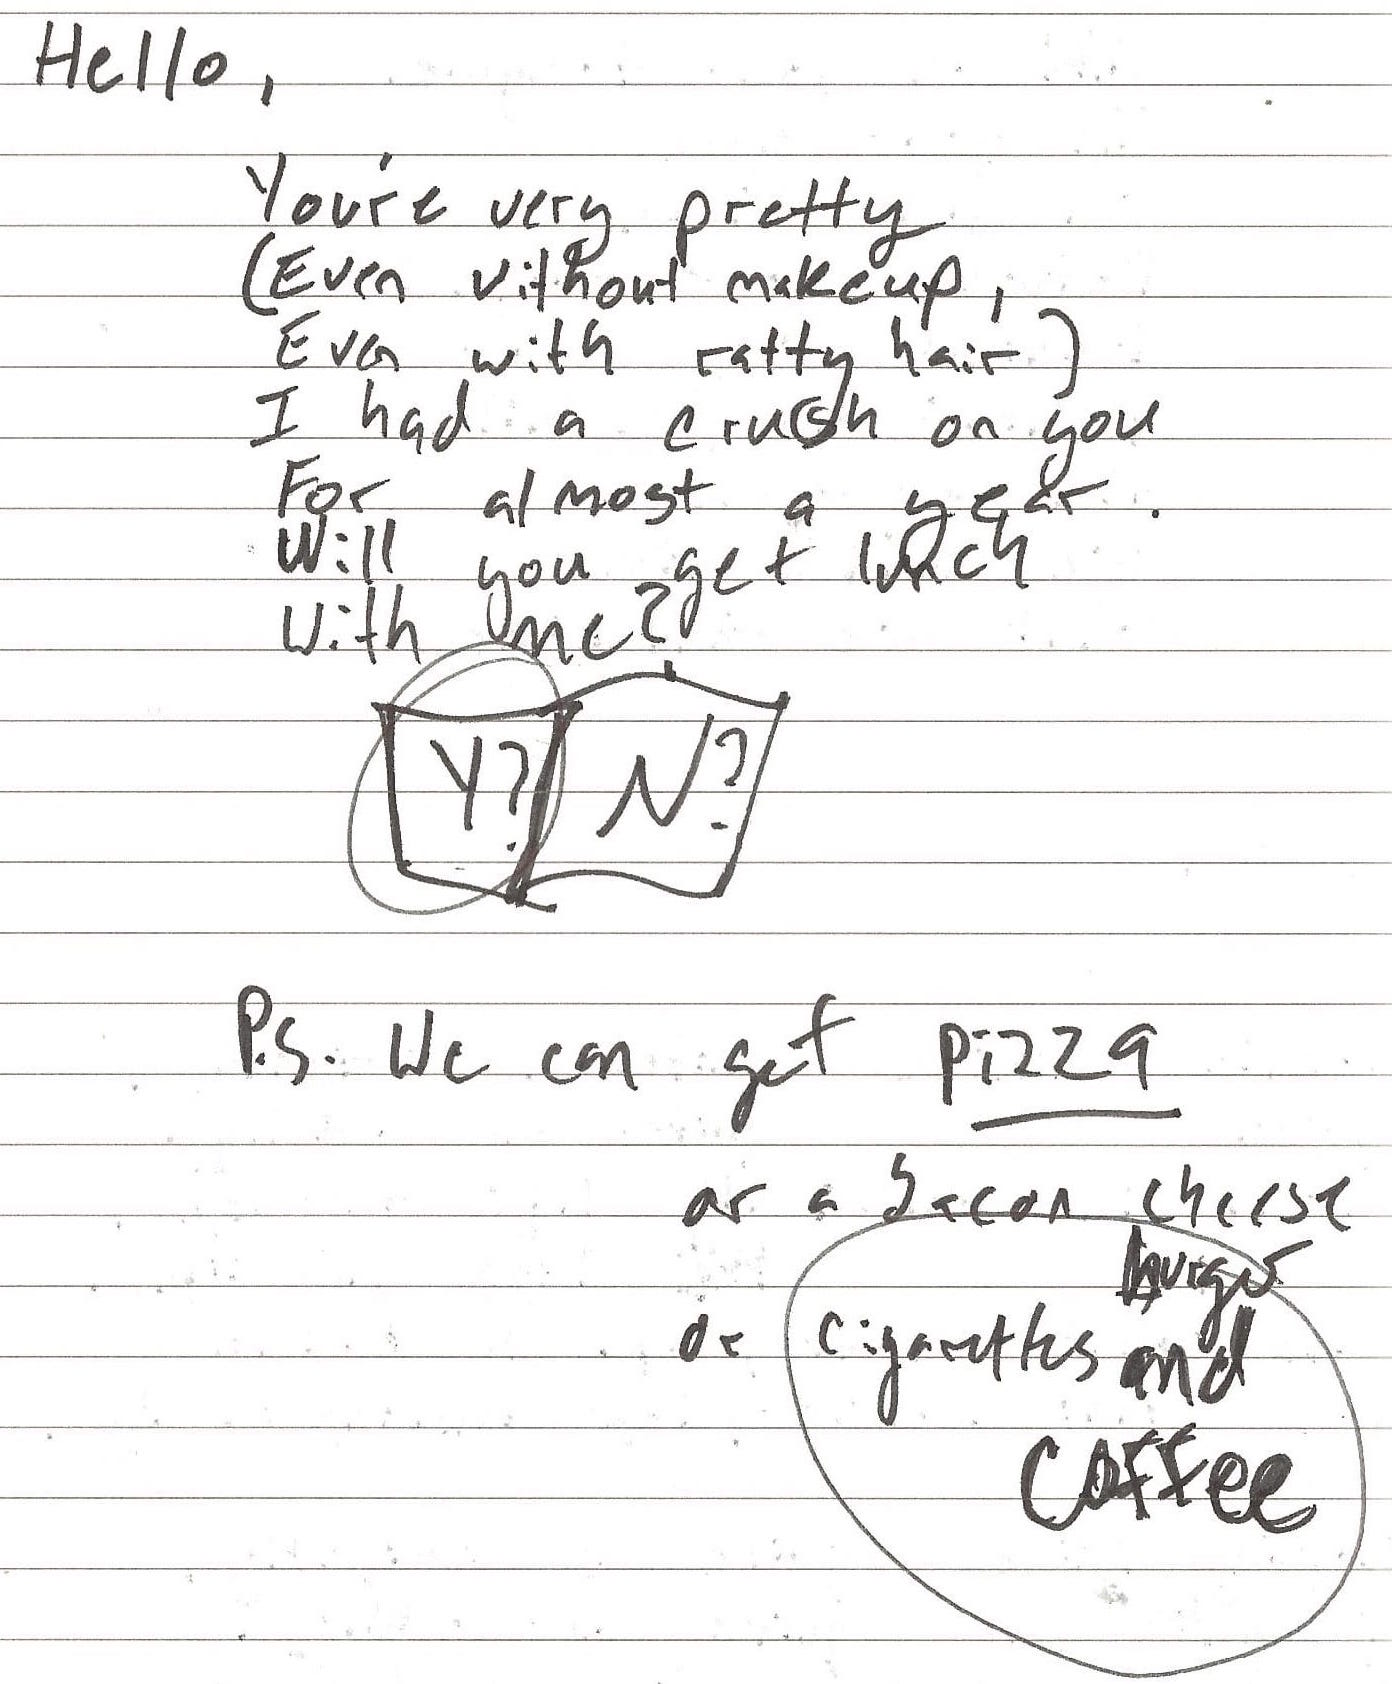 Hello,
You're very pretty
(Even without makeup,
Even with ratty hair)
I had a crush on you
For almost a year.
Will you get lunch
With me?
Y? N?
P.S. We can get pizza
or a bacon cheese
burger
or cigarettes and
coffee